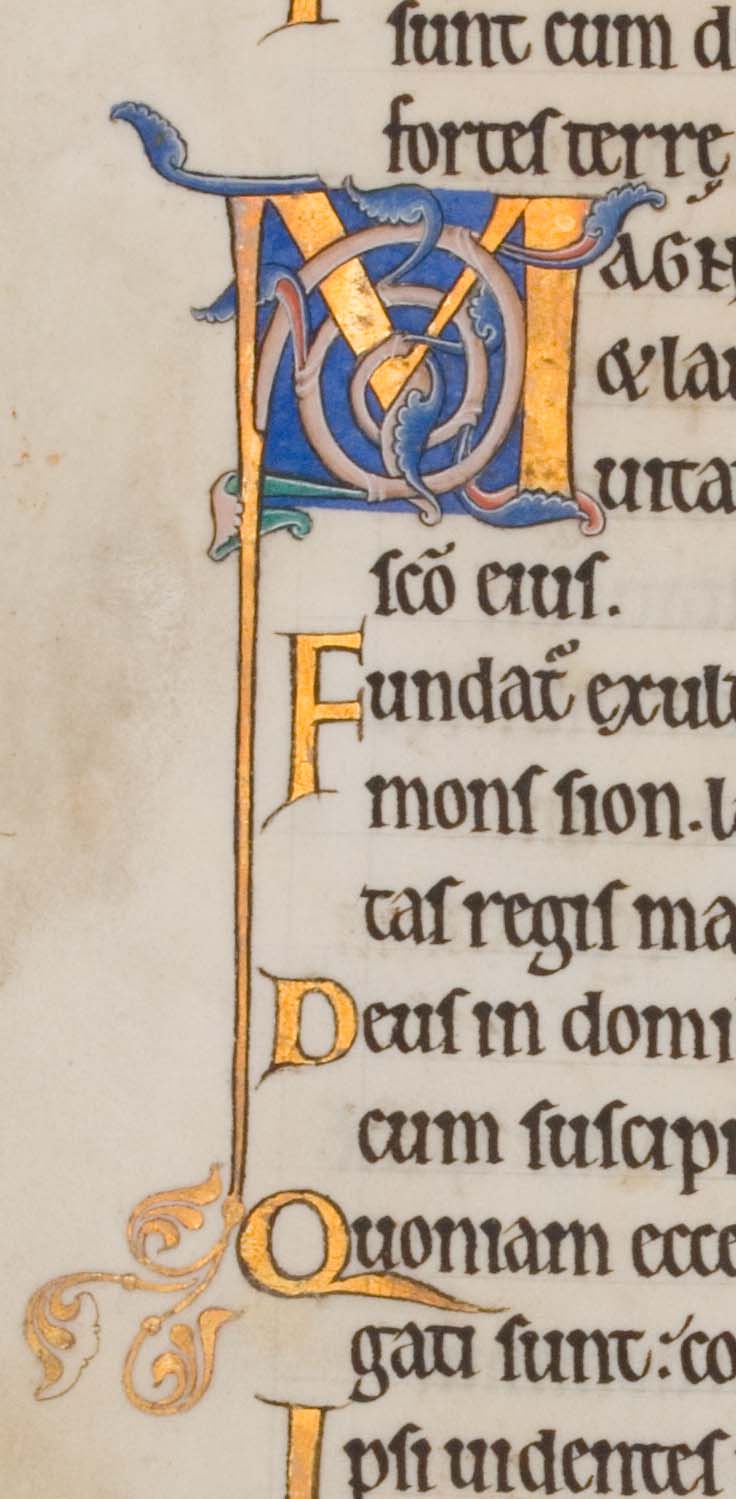 sunt cum d
fortes terrę
MAGN
& lau
uita
sco̅ eius.
Fundat̃ exul
mons sion. l
tas regis ma
Deus in domi
cum suscipi
Quoniam ecce
gati sunt: co
Ipsi uidentes